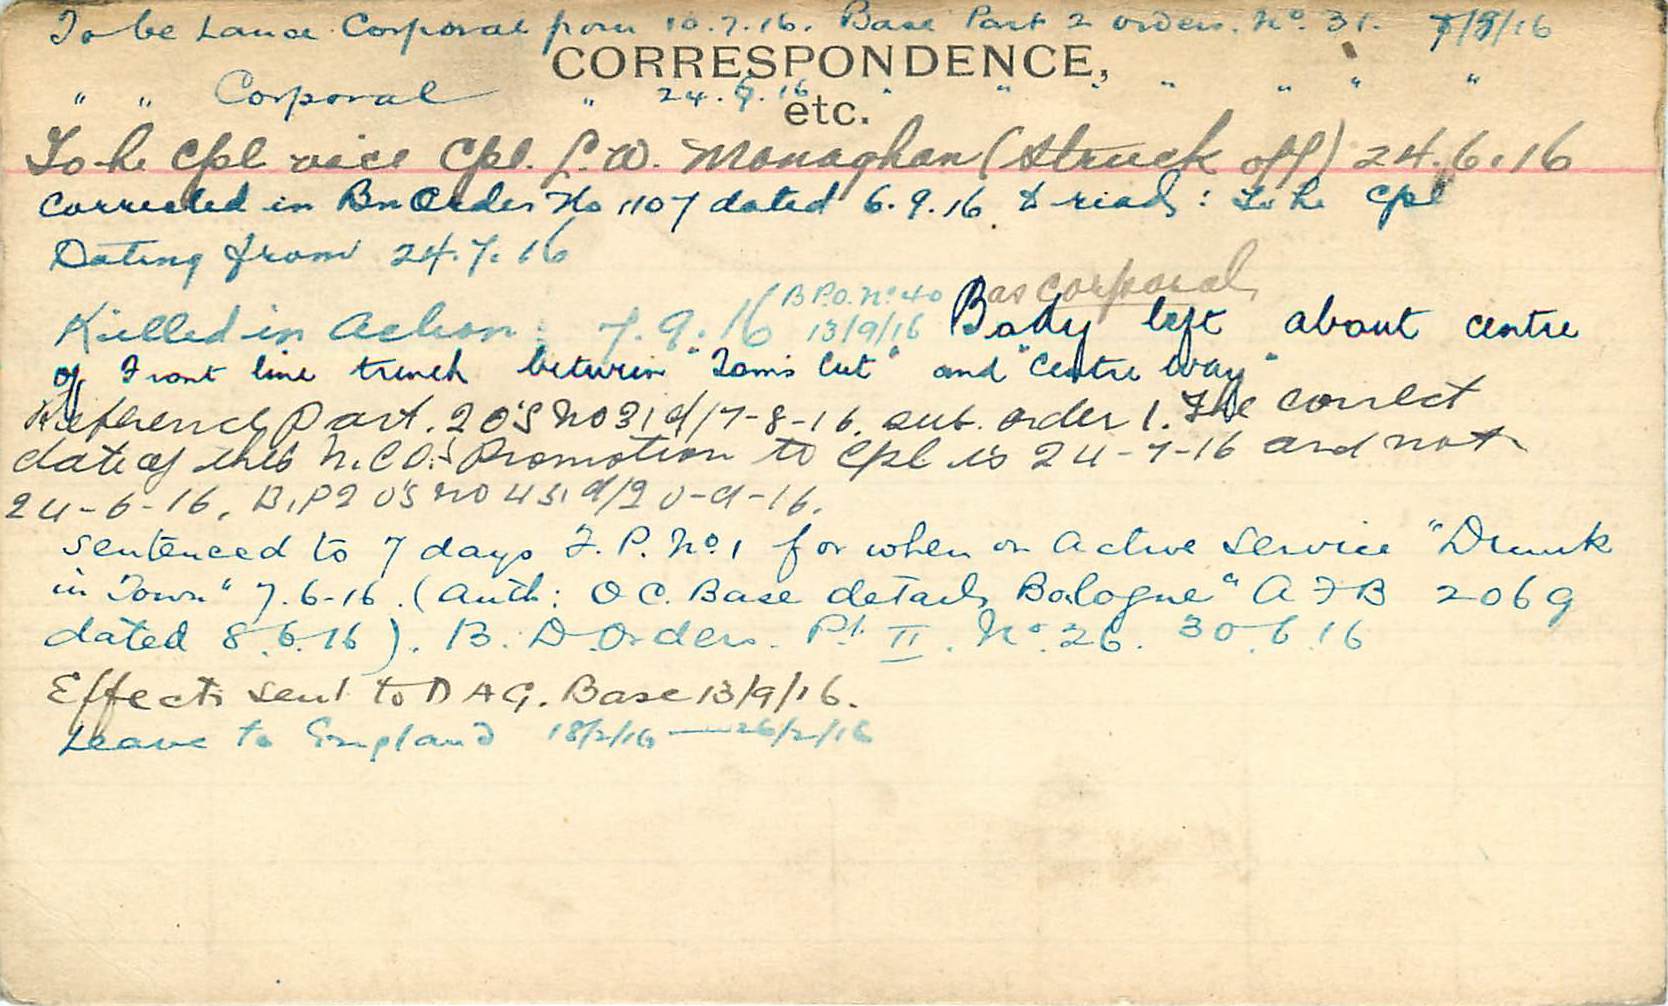 To be Lance Corporal from 10.7.16. Base Part 2 orders. No. 31. 7/8/16
CORRESPONDENCE,
" " Corporal " 24.6.16 " " " " " " "
etc.
To be Cpl vice Cpl. L.W. Monaghan (Struck off) 24.6.16
Corrected in Bn Order No 1107 dated 6.9.16 & reads: To be Cpl
Dating from 24.7.16
as corporal
Killed in Action: 7.9.16 B.P.O. No 40 13/9/16 Body left about centre
of Front line trench between "Toms Cut" and "Centre Way"
Reference Part. 2 O'S No 31 d/17-8-16. sub. order 1. The correct
date of this N.C.O.'s Promotion to Cpl is 24-7-16 and not
24-6-16. B.P2 O'S No d/20-9-16.
Sentenced to 7 days F.P. No. 1 for when on Active Service "Drunk
in Town" 7.6-16. (Auth: OC. Base details Bologne" A F B 2069
dated 8.6.16). B. D Orders. Pt. II. No. 26. 30.6.16
Effects sent to D A G. Base 13/9/16.
Leave to England 18/2/16 — 26/2/16